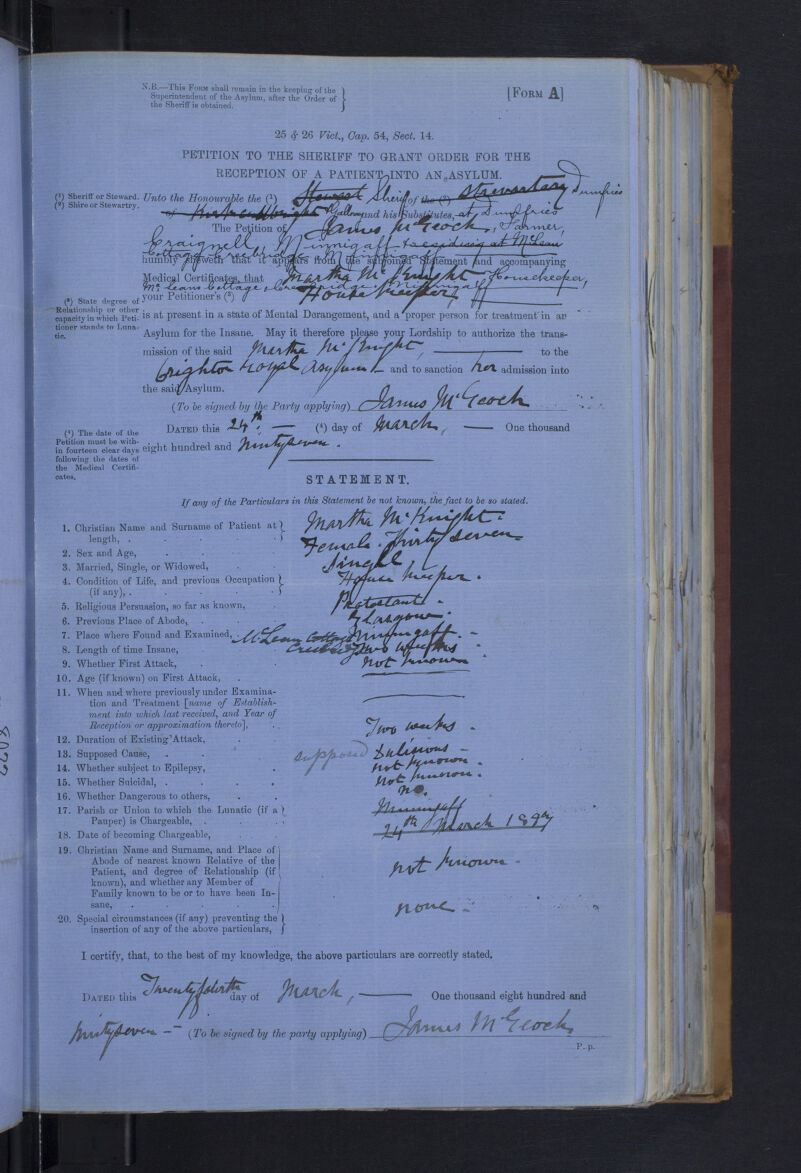 N.B.—This Form shall remain in the keeping of the
Superintendent of the Asylum, after the Order of
the Sheriff is obtained.
[Form A]
25 & 26 Vict., Cap. 54, Sect. 14.
PETITION TO THE SHERIFF TO GRANT ORDER FOR THE
RECEPTION OF A PATIENT INTO AN ASYLUM.
(¹) Sheriff or Steward.
(²) Shire or Stewartry.
Unto the Honourable the (¹) Stewart Sheriff of the (²) Stewartry Dumfries
of Kirkcudbright & Galloway and his Substitutes, at Dumfries
The Petition of James McGeoch, Farmer,
Craignell, Minnigaff residing at McLean
Cottage, Creebridge, Minnigaff
humbly sheweth that it appears from the subjoined Statement and accompanying
Medical Certificates, that Martha McKnight, Housekeeper,
McLeans Cottage, Creebridge, Minnigaff
your Petitioner's (³) House Keeper,
(³) State degree of
Relationship or other
capacity in which Peti-
tioner stands to Luna-
tic.
is at present in a state of Mental Derangement, and a proper person for treatment in an
Asylum for the Insane. May it therefore please your Lordship to authorize the trans-
mission of the said Martha McKnight, to the
Crighton Royal Asylum and to sanction her admission into
the said Asylum.
(To be signed by the Party applying) James McGeoch
(⁴) The date of the
Petition must be with-
in fourteen clear days
following the dates of
the Medical Certifi-
cates.
Dated this 24th. — (⁴) day of March, — One thousand
eight hundred and Nintyseven.
STATEMENT.
If any of the Particulars in this Statement be not known, the fact to be so stated.
1. Christian Name and Surname of Patient at
length, . Martha McKnight.
2. Sex and Age, Female. Thirty Seven
3. Married, Single, or Widowed, Singel
4. Condition of Life, and previous Occupation
(if any), . House keeper.
5. Religious Persuasion, so far as known, Protestant -
6. Previous Place of Abode, Glasgow.
7. Place where Found and Examined, McLean Cottage Minnigaff. -
Creebridge
8. Length of time Insane, Two weeks
9. Whether First Attack, not known
10. Age (if known) on First Attack,
11. When and where previously under Examina-
tion and Treatment [name of Establish-
ment into which last received, and Year of
Reception or approximation thereto],
12. Duration of Existing Attack, Two weeks -
13. Supposed Cause, supposed Dulisions -
14. Whether subject to Epilepsy, not known.
15. Whether Suicidal, not known.
16. Whether Dangerous to others, no.
17. Parish or Union to which the Lunatic (if a
Pauper) is Chargeable, Minnigaff
18. Date of becoming Chargeable, 24th March 1897
19. Christian Name and Surname, and Place of
Abode of nearest known Relative of the
Patient, and degree of Relationship (if
known), and whether any Member of
Family known to be or to have been In-
sane, not known -
20. Special circumstances (if any) preventing the
insertion of any of the above particulars, none -
I certify, that, to the best of my knowledge, the above particulars are correctly stated.
Dated this Twentyfourth day of March, — One thousand eight hundred and
Nintyseven — (To be signed by the party applying) James McGeoch
P. p.